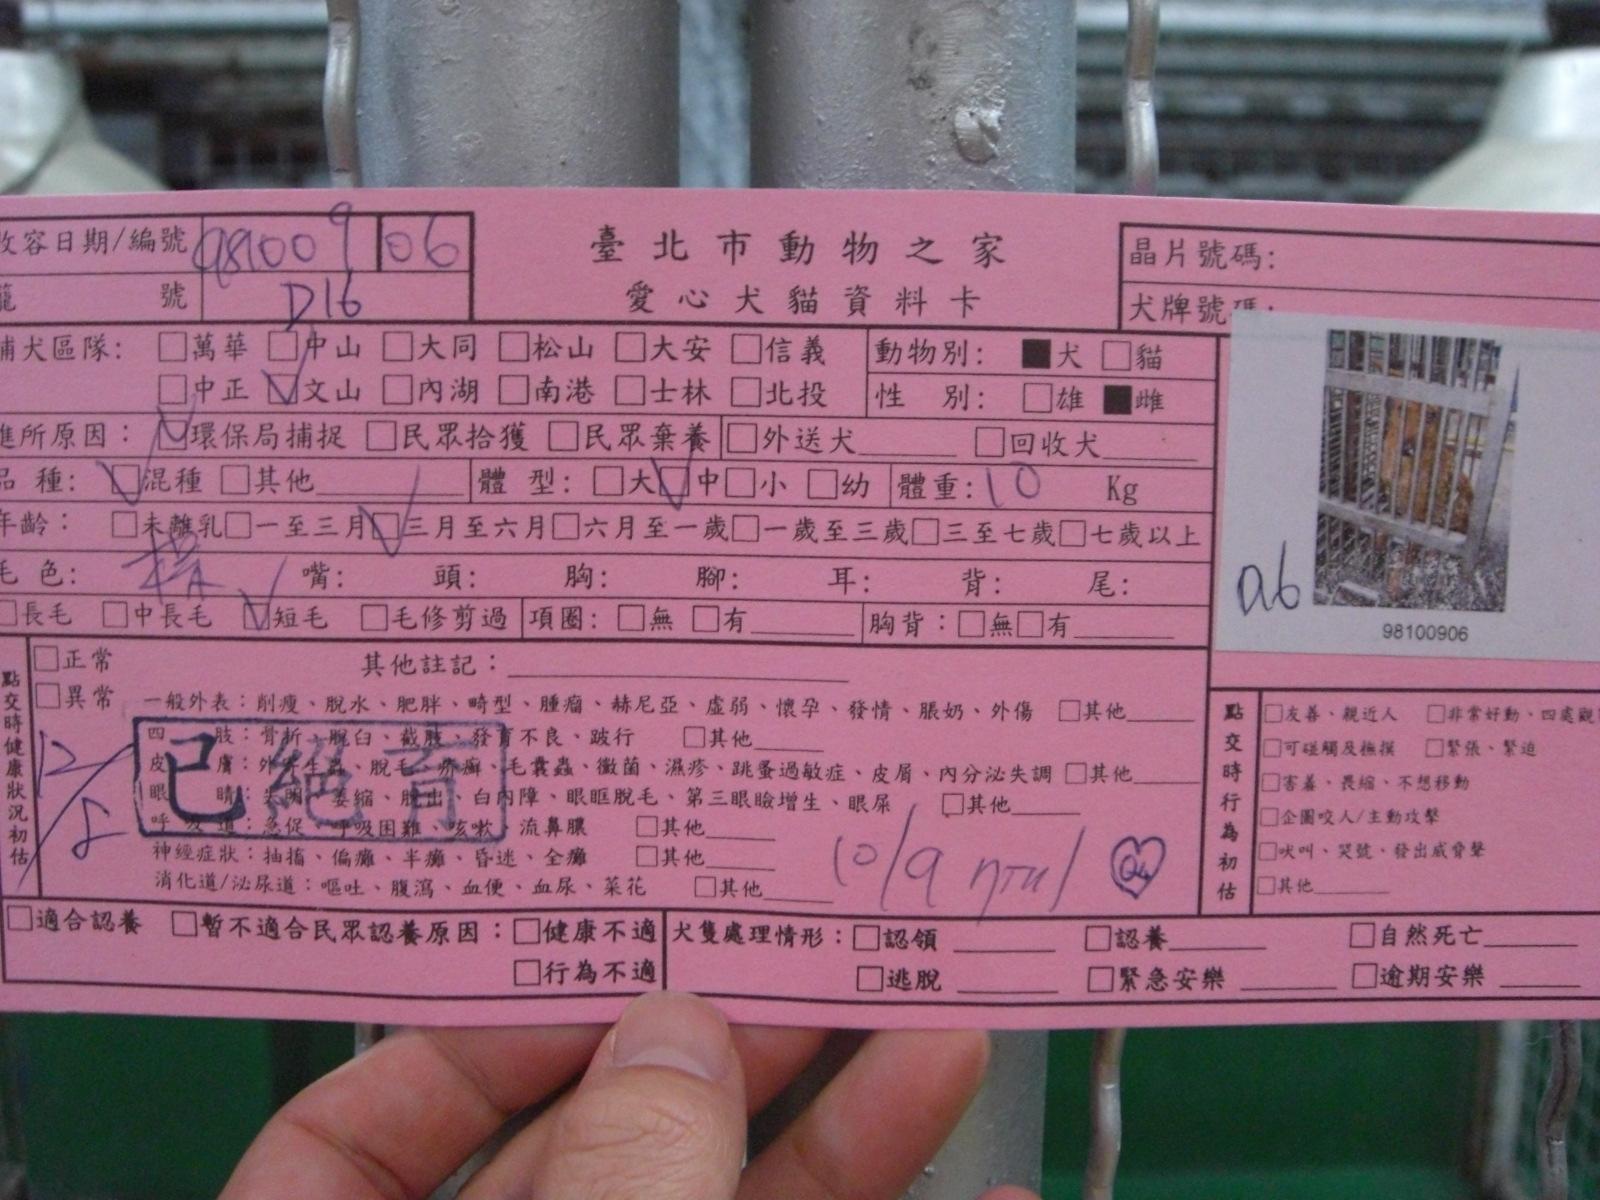 收容日期/編號 981009 06
籠 號 D16
臺北市動物之家
愛心犬貓資料卡
晶片號碼:
犬牌號碼:
捕犬區隊: □萬華 □中山 □大同 □松山 □大安 □信義
□中正 ☑文山 □內湖 □南港 □士林 □北投
動物別: ■犬 □貓
性 別: □雄 ■雌
進所原因: ☑環保局捕捉 □民眾拾獲 □民眾棄養 □外送犬 □回收犬
品 種: ☑混種 □其他 體 型: □大 ☑中 □小 □幼 體重: 10 Kg
年齡: □未離乳 □一至三月 ☑三月至六月 □六月至一歲 □一歲至三歲 □三至七歲 □七歲以上
毛 色: 嘴: 頭: 胸: 腳: 耳: 背: 尾:
□長毛 □中長毛 ☑短毛 □毛修剪過 項圈: □無 □有 胸背: □無 □有
D16
98100906
點交時健康狀況初估
□正常 其他註記:
□異常 一般外表: 削瘦、脫水、肥胖、畸型、腫瘤、赫尼亞、虛弱、懷孕、發情、脹奶、外傷 □其他
四 肢: 骨折、脫臼、截肢、發育不良、跛行 □其他
皮 膚: 外寄生蟲、脫毛、疥癬、毛囊蟲、黴菌、濕疹、跳蚤過敏症、皮屑、內分泌失調 □其他
眼 睛: 失明、萎縮、脫出、白內障、眼眶脫毛、第三眼瞼增生、眼屎 □其他
呼吸道: 急促、呼吸困難、咳嗽、流鼻膿 □其他
神經症狀: 抽搐、偏癱、半癱、昏迷、全癱 □其他
消化道/泌尿道: 嘔吐、腹瀉、血便、血尿、菜花 □其他
已絕育
12/8
10/9
點交時行為初估
□友善、親近人 □非常好動、四處觀
□可碰觸及撫摸 □緊張、緊迫
□害羞、畏縮、不想移動
□企圖咬人/主動攻擊
□吠叫、哭號、發出威脅聲
□其他
□適合認養 □暫不適合民眾認養原因: □健康不適
□行為不適
犬隻處理情形: □認領 □認養 □自然死亡
□逃脫 □緊急安樂 □逾期安樂